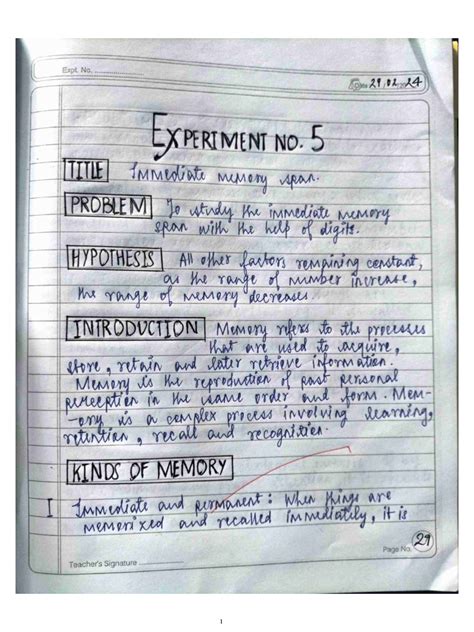 Expt. No.
Date 29/02/2024
EXPERIMENT NO. 5
TITLE Immediate memory span.
PROBLEM To study the immediate memory
span with the help of digits.
HYPOTHESIS All other factors remaining constant,
as the range of number increase,
the range of memory decreases.
INTRODUCTION Memory refers to the processes
that are used to acquire,
store, retain and later retrieve information.
Memory is the reproduction of past personal
perception in the same order and form. Mem-
-ory is a complex process involving learning,
retention, recall and recognition.
KINDS OF MEMORY
I Immediate and permanent: When things are
memorized and recalled immediately, it is
Page No. 29
Teacher's Signature
1